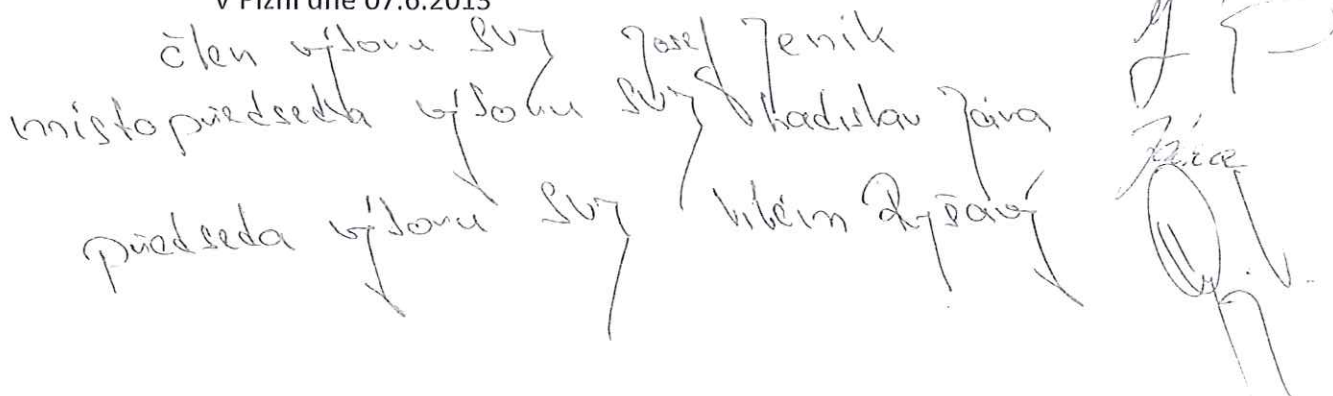 V Plzni dne 07.6.2013
člen výboru SVJ Josef Jeník
místopředseda výboru SVJ Vladislav Jára
předseda výboru SVJ Vilém Ryšavý